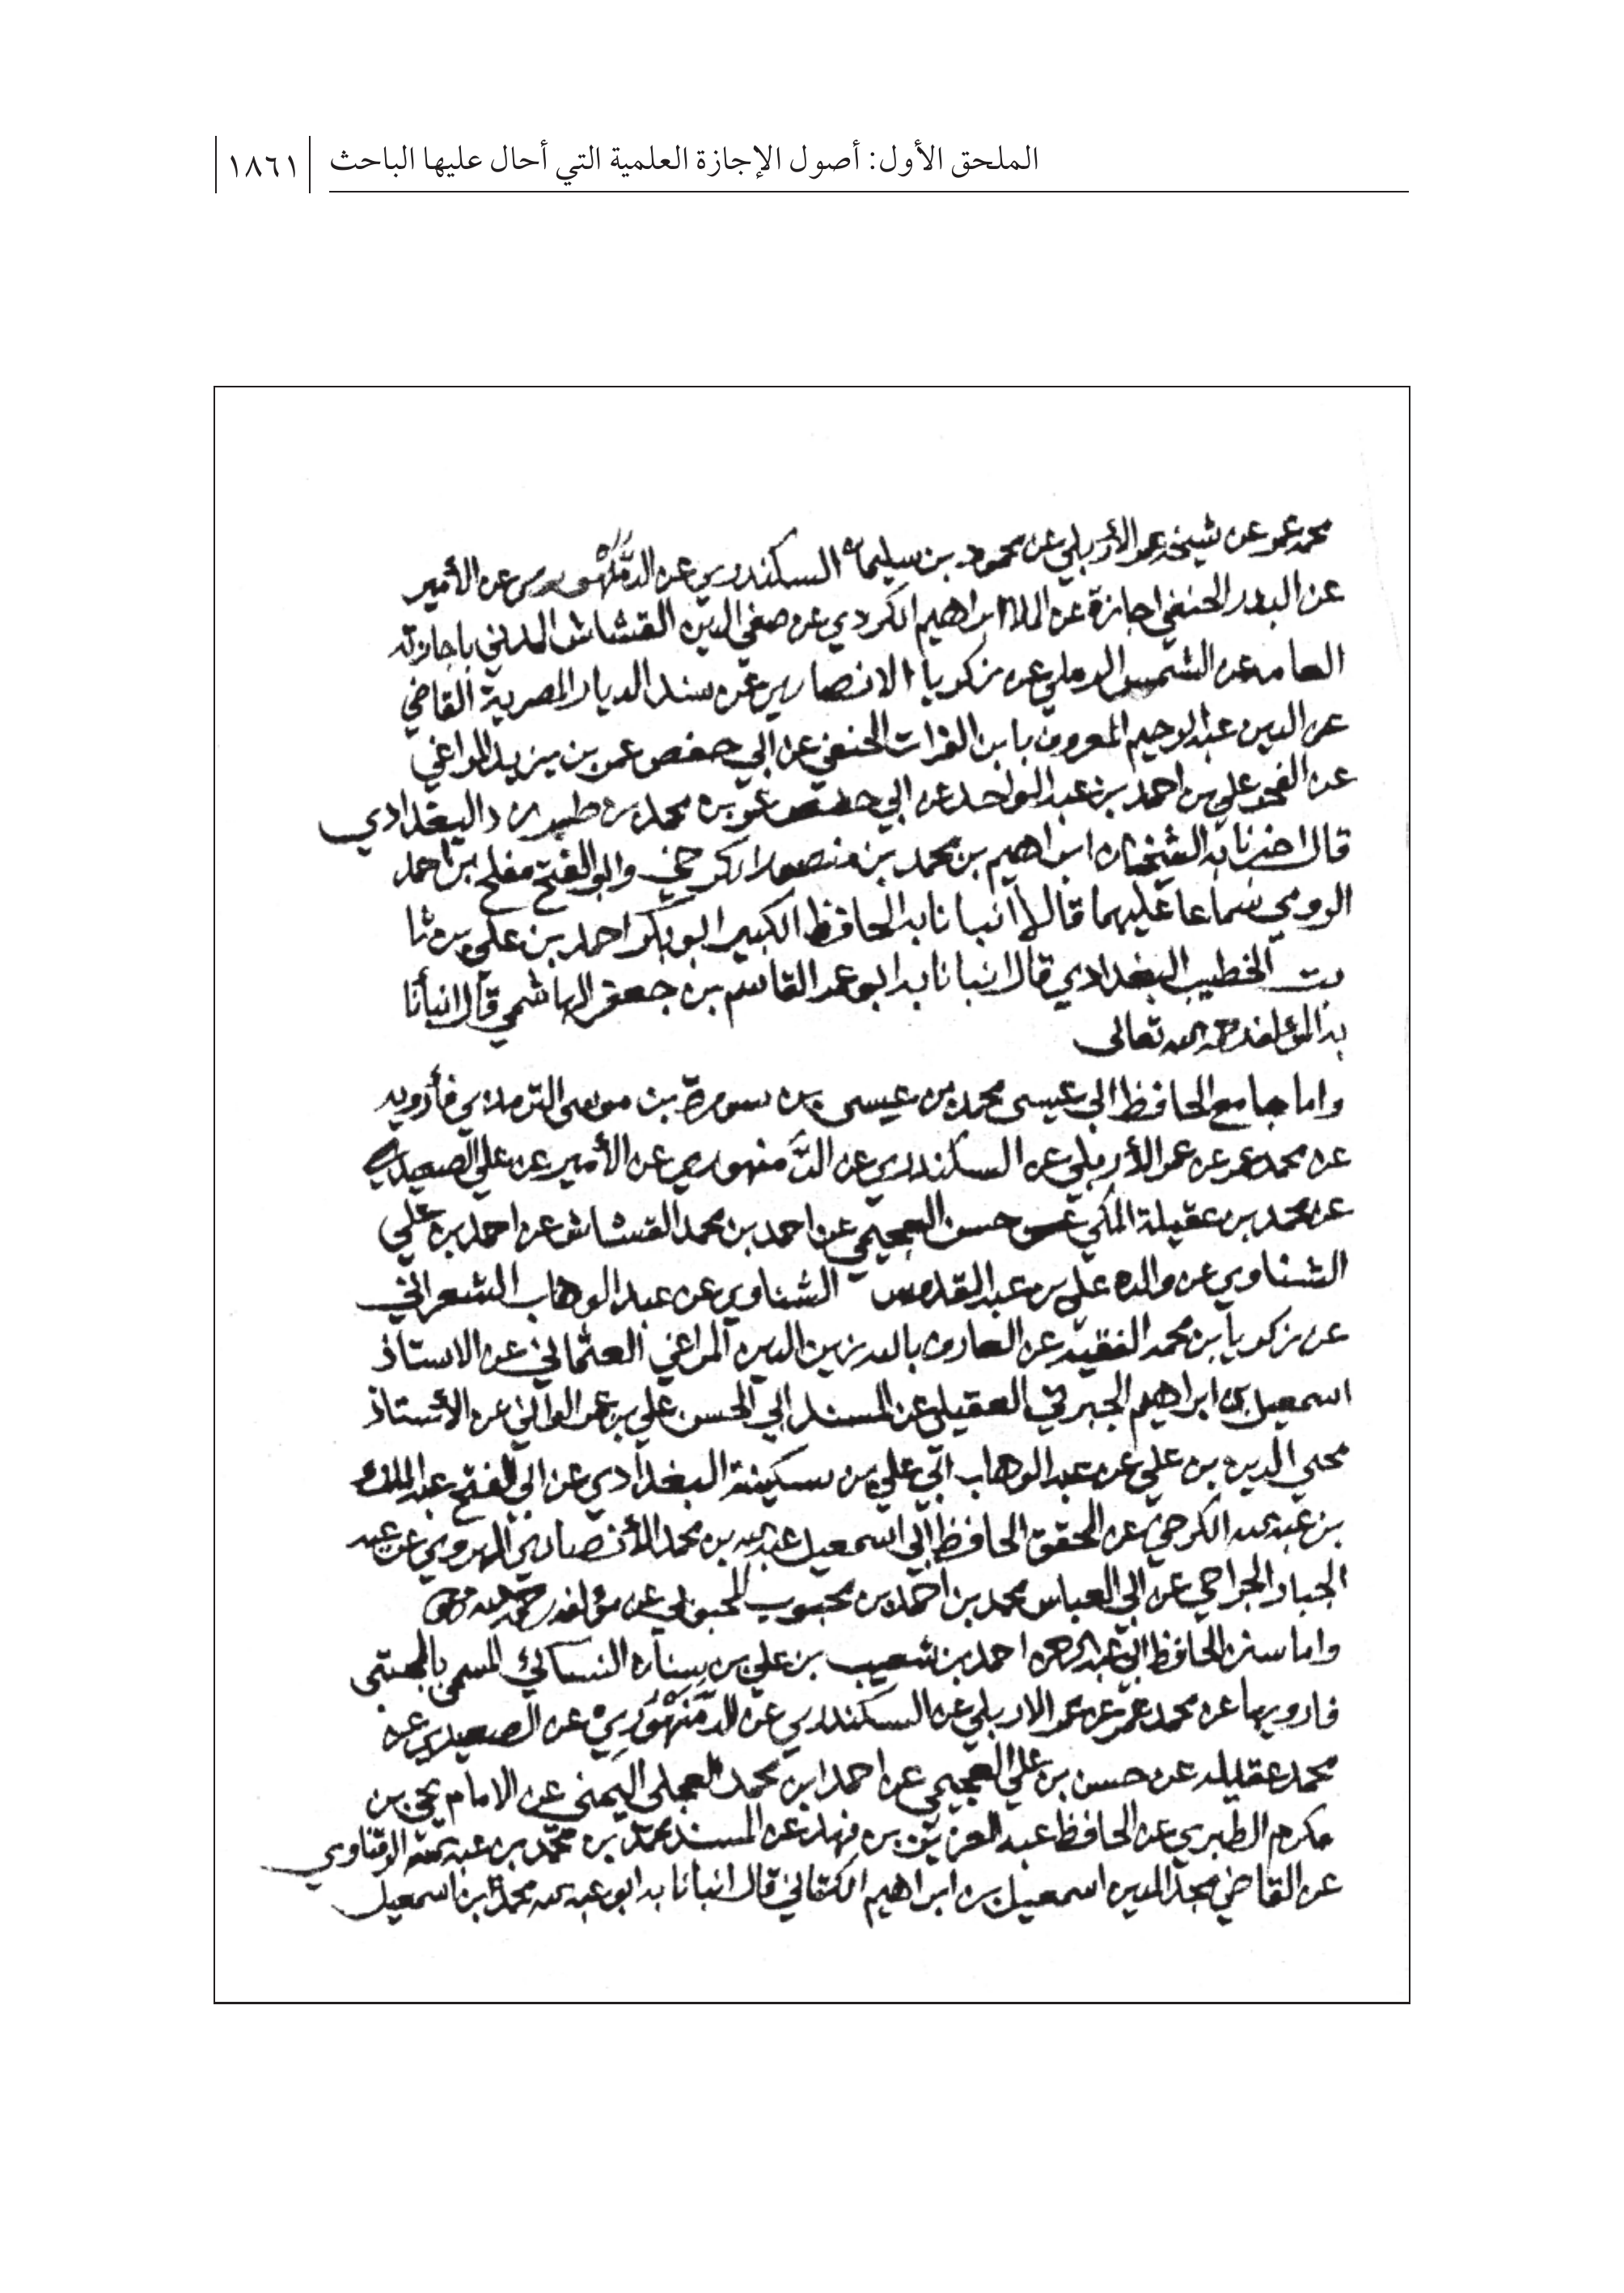 الملحق الأول: أصول الإجازة العلمية التي أحال عليها الباحث
١٨٦١
محمد عمر عن شيخه عمر الأربلي عن محمود بن سليمان السكندري عن الدمنهوري عن الأمير
عن البدر الحنفي اجازة عن الملا ابراهيم الكردي عن صفي الدين القشاش المدني باجازته
العامه عن الشمس الرملي عن زكريا الانصاري عن سند الديار المصرية القاضي
عز الدين عبد الرحيم المعروف بابن الفرات الحنفي عن ابي حفص عمر بن يزيد المراغي
عن الفخر علي بن احمد بن عبد الواحد عن ابي حفص عمر بن محمد بن طبرزد البغدادي
قال اخبرنا به الشيخان ابراهيم بن محمد بن منصور الكرخي وابو الفتح مفلح بن احمد
الرومي سماعا عليهما قالا انبانا به الحافظ الكبير ابو بكر احمد بن علي بن ثا
بت الخطيب البغدادي قال انبانا به ابو عمر القاسم بن جعفر الهاشمي قال انبأنا
به المؤلف رحمه الله تعالى
واما جامع الحافظ ابي عيسى محمد بن عيسى بن سورة بن موسى الترمذي فأرويه
عن محمد عمر عن عمر الأربلي عن السكندري عن الدمنهوري عن الأمير عن علي الصعيدي
عن محمد بن عقيلة المكي عن حسن العجيمي عن احمد بن محمد القشاش عن احمد بن علي
الشناوي عن والده علي بن عبد القدوس الشناوي عن عبد الوهاب الشعراني
عن زكريا بن محمد الفقيه عن العارف بالله زين الدين المراغي العثماني عن الاستاذ
اسمعيل بن ابراهيم الجبرتي العقيلي عن المسند ابي الحسن علي بن عمر الواني عن الأستاذ
محي الدين بن علي عن عبد الوهاب ابي علي بن سكينة البغدادي عن ابي الفتح عبد الملك
بن عبد الله الكرخي عن المحقق الحافظ ابي اسمعيل عبد الله بن محمد الأنصاري الهروي عن عبد
الجبار الجراحي عن ابي العباس محمد بن احمد بن محبوب المحبوبي عن مؤلفه رحمه الله
واما سنن الحافظ ابي عبد الرحمن احمد بن شعيب بن علي بن سنان النسائي المسمى بالمجتبى
فارويها عن محمد عمر عن عمر الاربلي عن السكندري عن الدمنهوري عن الصعيدي عن
محمد عقيله عن حسن بن علي العجيمي عن احمد ابن محمد العجلي اليمني عن الامام يحي بن
مكرم الطبري عن الحافظ عبد العزيز بن فهد عن المسند محمد بن محمد بن عبد الله الزفتاوي
عن القاضي مجد الدين اسمعيل بن ابراهيم الكتاني قال انبانا به ابو عبد الله محمد ابن اسمعيل